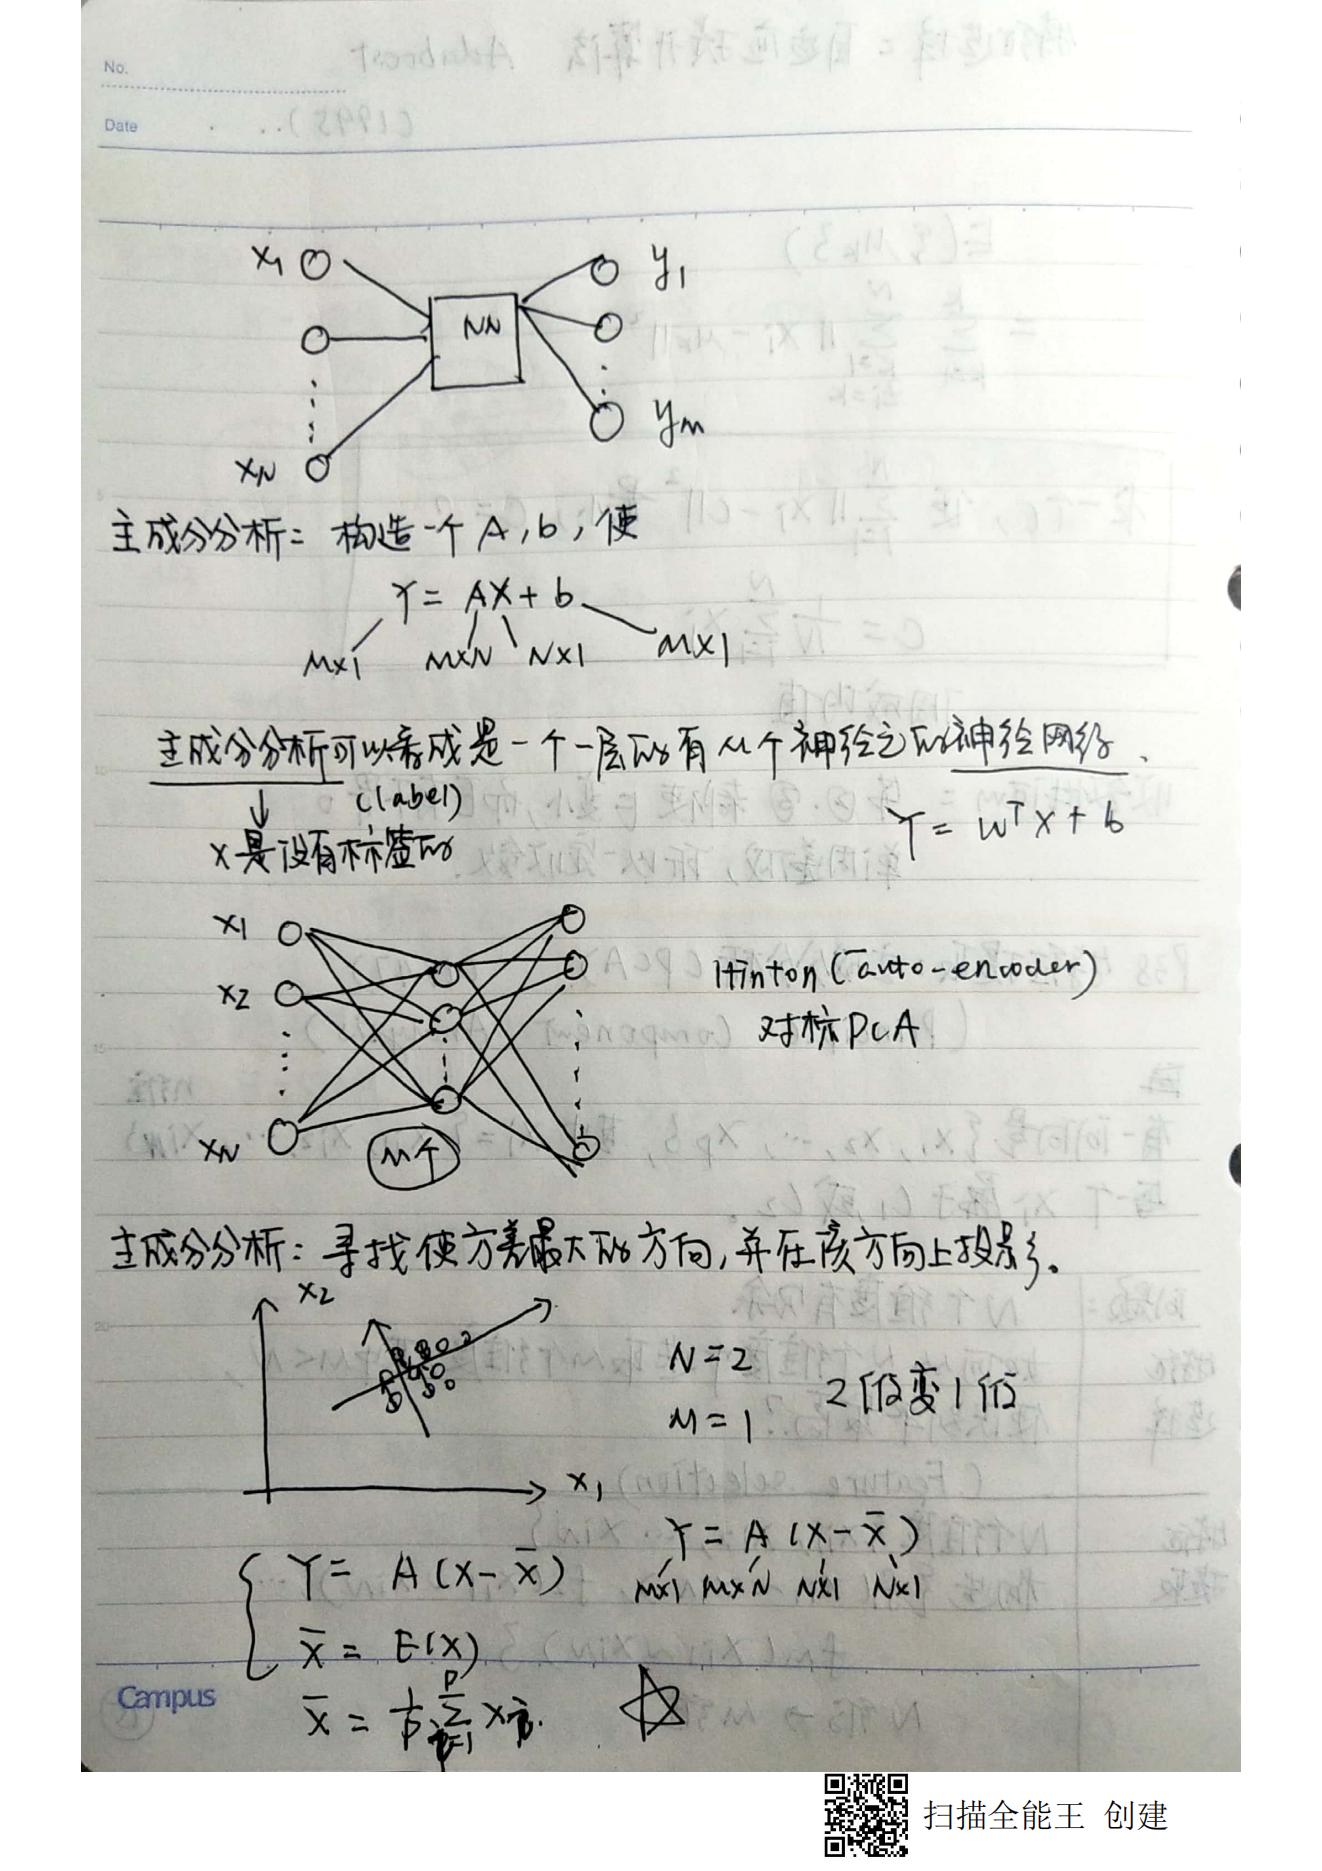 No.
Date
x₁
y₁
NN
yₘ
x_N
主成分分析: 构造一个 A, b, 使
Y = AX + b
M×1 M×N N×1 M×1
主成分分析可以看成是一个一层的有M个神经元的神经网络.
(label)
x是没有标签的
Y = wᵀx + b
x₁
x₂
Hinton (auto-encoder)
对标PCA
x_N
M个
主成分分析: 寻找使方差最大的方向,并在该方向上投影.
x₂
N = 2
M = 1
2维变1维
x₁
Y = A (X - x̄)
M×1 M×N N×1 N×1
Y = A (X - x̄)
x̄ = E(X)
Campus
扫描全能王 创建